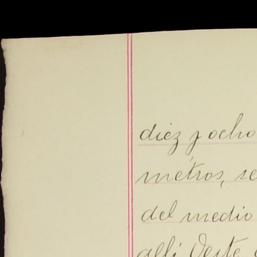 diez y ocho
metros, se
del medio
allí Oeste